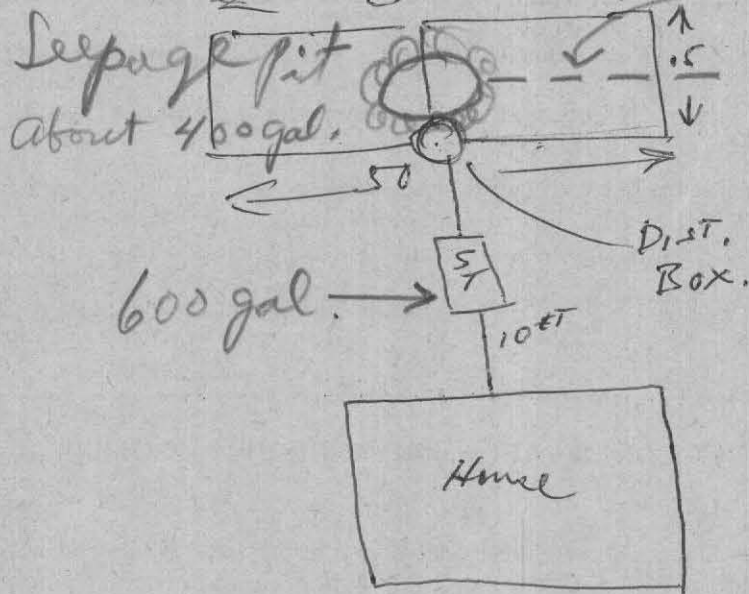 Seepage pit
About 400 gal.
.5
50
DIST.
BOX.
ST
600 gal.
10 FT
House